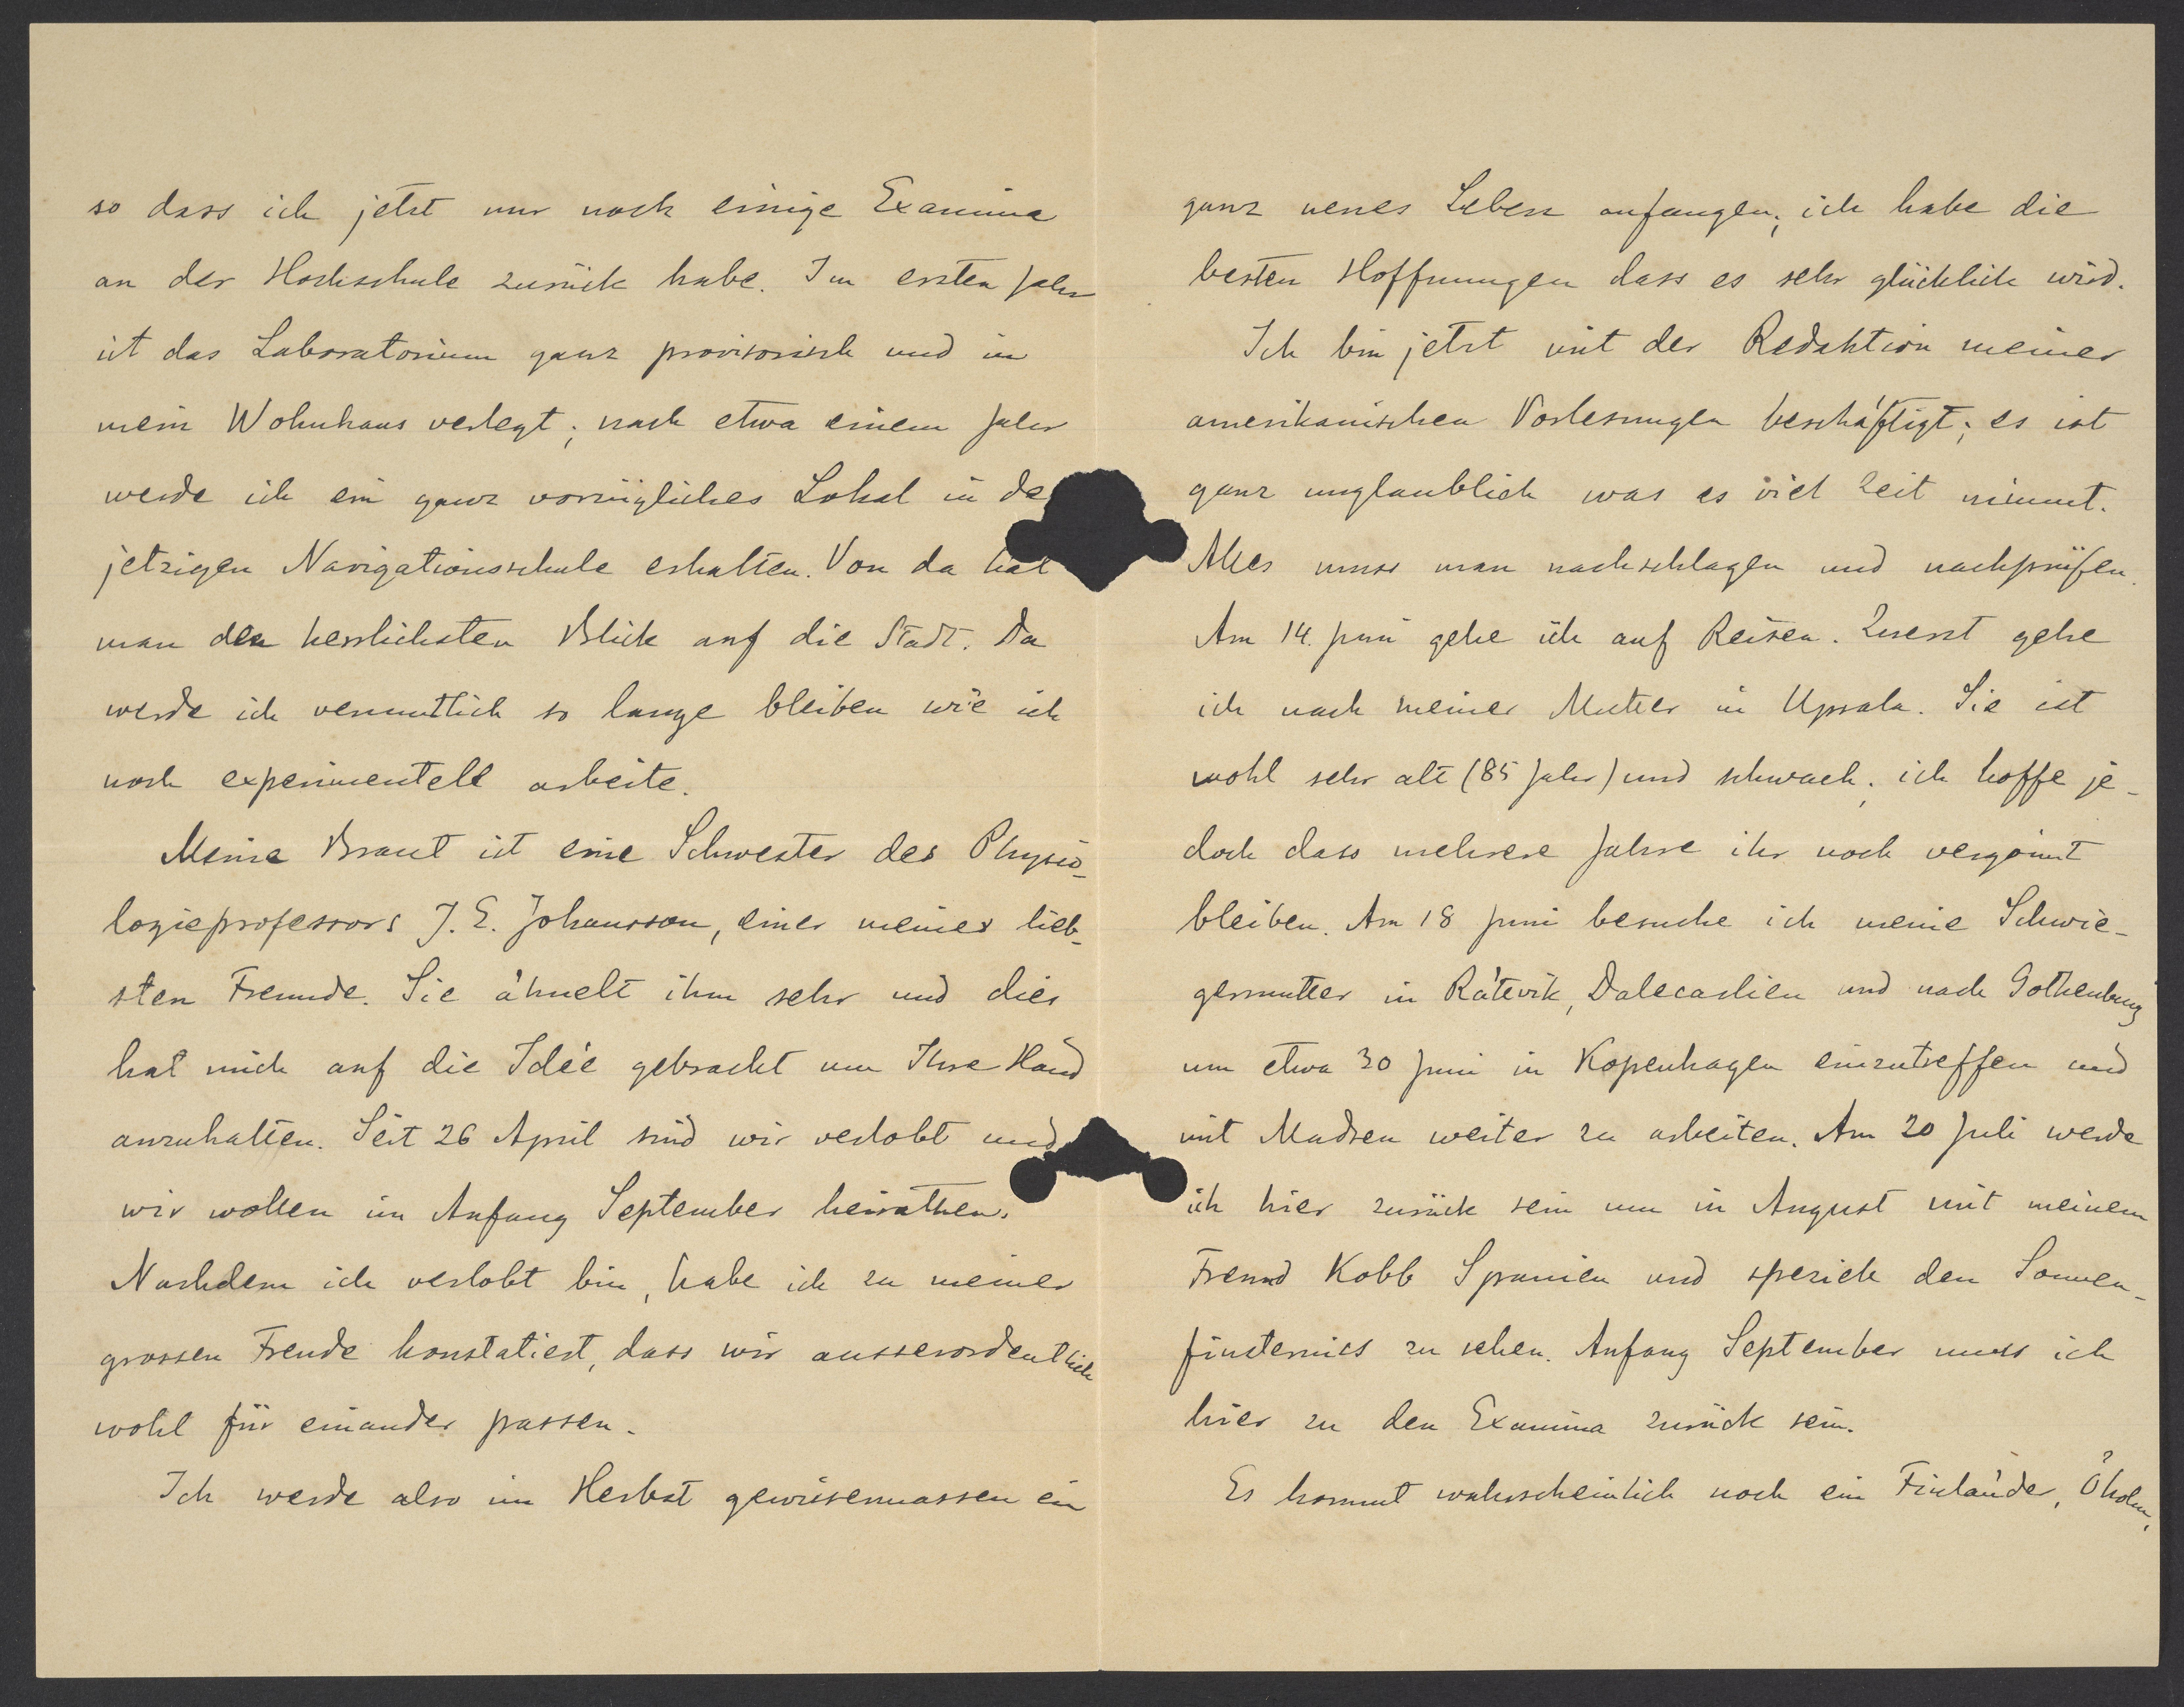 so dass ich jetzt nur noch einige Examina
an der Hochschule zurück habe. Im ersten Jahr
ist das Laboratorium ganz provisorisch und in
mein Wohnhaus verlegt; nach etwa einem Jahr
werde ich ein ganz vorzügliches Lokal in de
jetzigen Navigationsschule erhalten. Von da hat
man den herrlichsten Blick auf die Stadt. Da
werde ich vermutlich so lange bleiben wie ich
noch experimentell arbeite.
Meine Braut ist eine Schwester des Physio-
logieprofessors J. E. Johansson, einer meiner lieb-
sten Freunde. Sie ähnelt ihm sehr und dies
hat mich auf die Idée gebracht um Ihre Hand
anzuhalten. Seit 26 April sind wir verlobt und
wir wollen im Anfang September heirathen.
Nachdem ich verlobt bin, habe ich zu meiner
grossen Freude konstatiert, dass wir ausserordentlich
wohl für einander passen.
Ich werde also im Herbst gewissermassen ein
ganz neues Leben anfangen; ich habe die
besten Hoffnungen dass es sehr glücklich wird.
Ich bin jetzt mit der Redaktion meiner
amerikanischen Vorlesungen beschäftigt; es ist
ganz unglaublich was es viel Zeit nimmt.
Alles muss man nachschlagen und nachprüfen.
Am 14. Juni gehe ich auf Reisen. Zuerst gehe
ich nach meiner Mutter in Upsala. Sie ist
wohl sehr alt (85 Jahr) und schwach; ich hoffe je-
doch dass mehrere Jahre ihr noch vergönnt
bleiben. Am 18 Juni besuche ich meine Schwie-
germutter in Rätevik, Dalecarlien und nach Gothenburg
um etwa 30 Juni in Kopenhagen einzutreffen und
mit Madsen weiter zu arbeiten. Am 20 Juli werde
ich hier zurück sein um in August mit meinem
Freund Kobb Spanien und speziell den Sonnen-
finsterniss zu sehen. Anfang September muss ich
hier zu den Examina zurück sein.
Es kommt wahrscheinlich noch ein Finländer, Öholm,